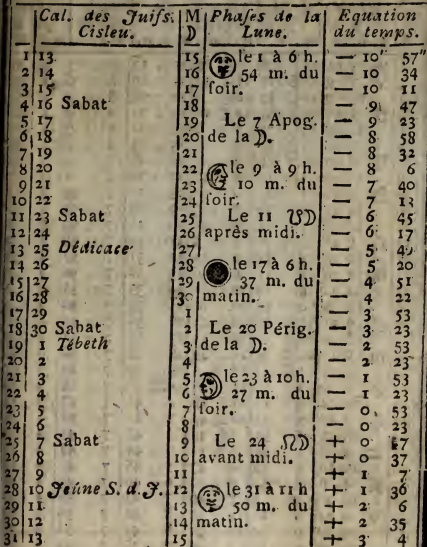 Cal. des Juifs. Cisleu. | M ☽ | Phases de la Lune. | Equation du temps.
1 | 13 | 15 | le 1 à 6 h. | — 10" 57"
2 | 14 | 16 | 54 m. du | — 10 34
3 | 15 | 17 | soir. | — 10 11
4 | 16 Sabat | 18 | | — 9 47
5 | 17 | 19 | Le 7 Apog. | — 9 23
6 | 18 | 20 | de la ☽. | — 8 58
7 | 19 | 21 | | — 8 32
8 | 20 | 22 | le 9 à 9 h. | — 8 6
9 | 21 | 23 | 10 m. du | — 7 40
10 | 22 | 24 | soir. | — 7 13
11 | 23 Sabat | 25 | Le 11 ☋☽ | — 6 45
12 | 24 | 26 | après midi. | — 6 17
13 | 25 Dédicace | 27 | | — 5 49
14 | 26 | 28 | le 17 à 6 h. | — 5 20
15 | 27 | 29 | 37 m. du | — 4 51
16 | 28 | 30 | matin. | — 4 22
17 | 29 | 1 | | — 3 53
18 | 30 Sabat | 2 | Le 20 Périg. | — 3 23
19 | 1 Tébeth | 3 | de la ☽. | — 2 53
20 | 2 | 4 | | — 2 23
21 | 3 | 5 | le 23 à 10 h. | — 1 53
22 | 4 | 6 | 27 m. du | — 1 23
23 | 5 | 7 | soir. | — 0 53
24 | 6 | 8 | | — 0 23
25 | 7 Sabat | 9 | Le 24 ☊☽ | + 0 7
26 | 8 | 10 | avant midi. | + 0 37
27 | 9 | 11 | | + 1 7
28 | 10 Jeûne S. d. J. | 12 | le 31 à 11 h | + 1 36
29 | 11 | 13 | 50 m. du | + 2 6
30 | 12 | 14 | matin. | + 2 35
31 | 13 | 15 | | + 3 4